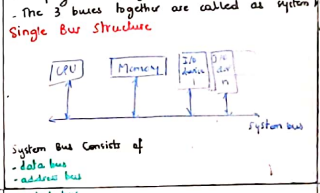 - The 3 buses together are called as system
Single Bus Structure
CPU
Memory
I/O device 1
I/O n
System bus
System Bus Consists of
- data bus
- address bus